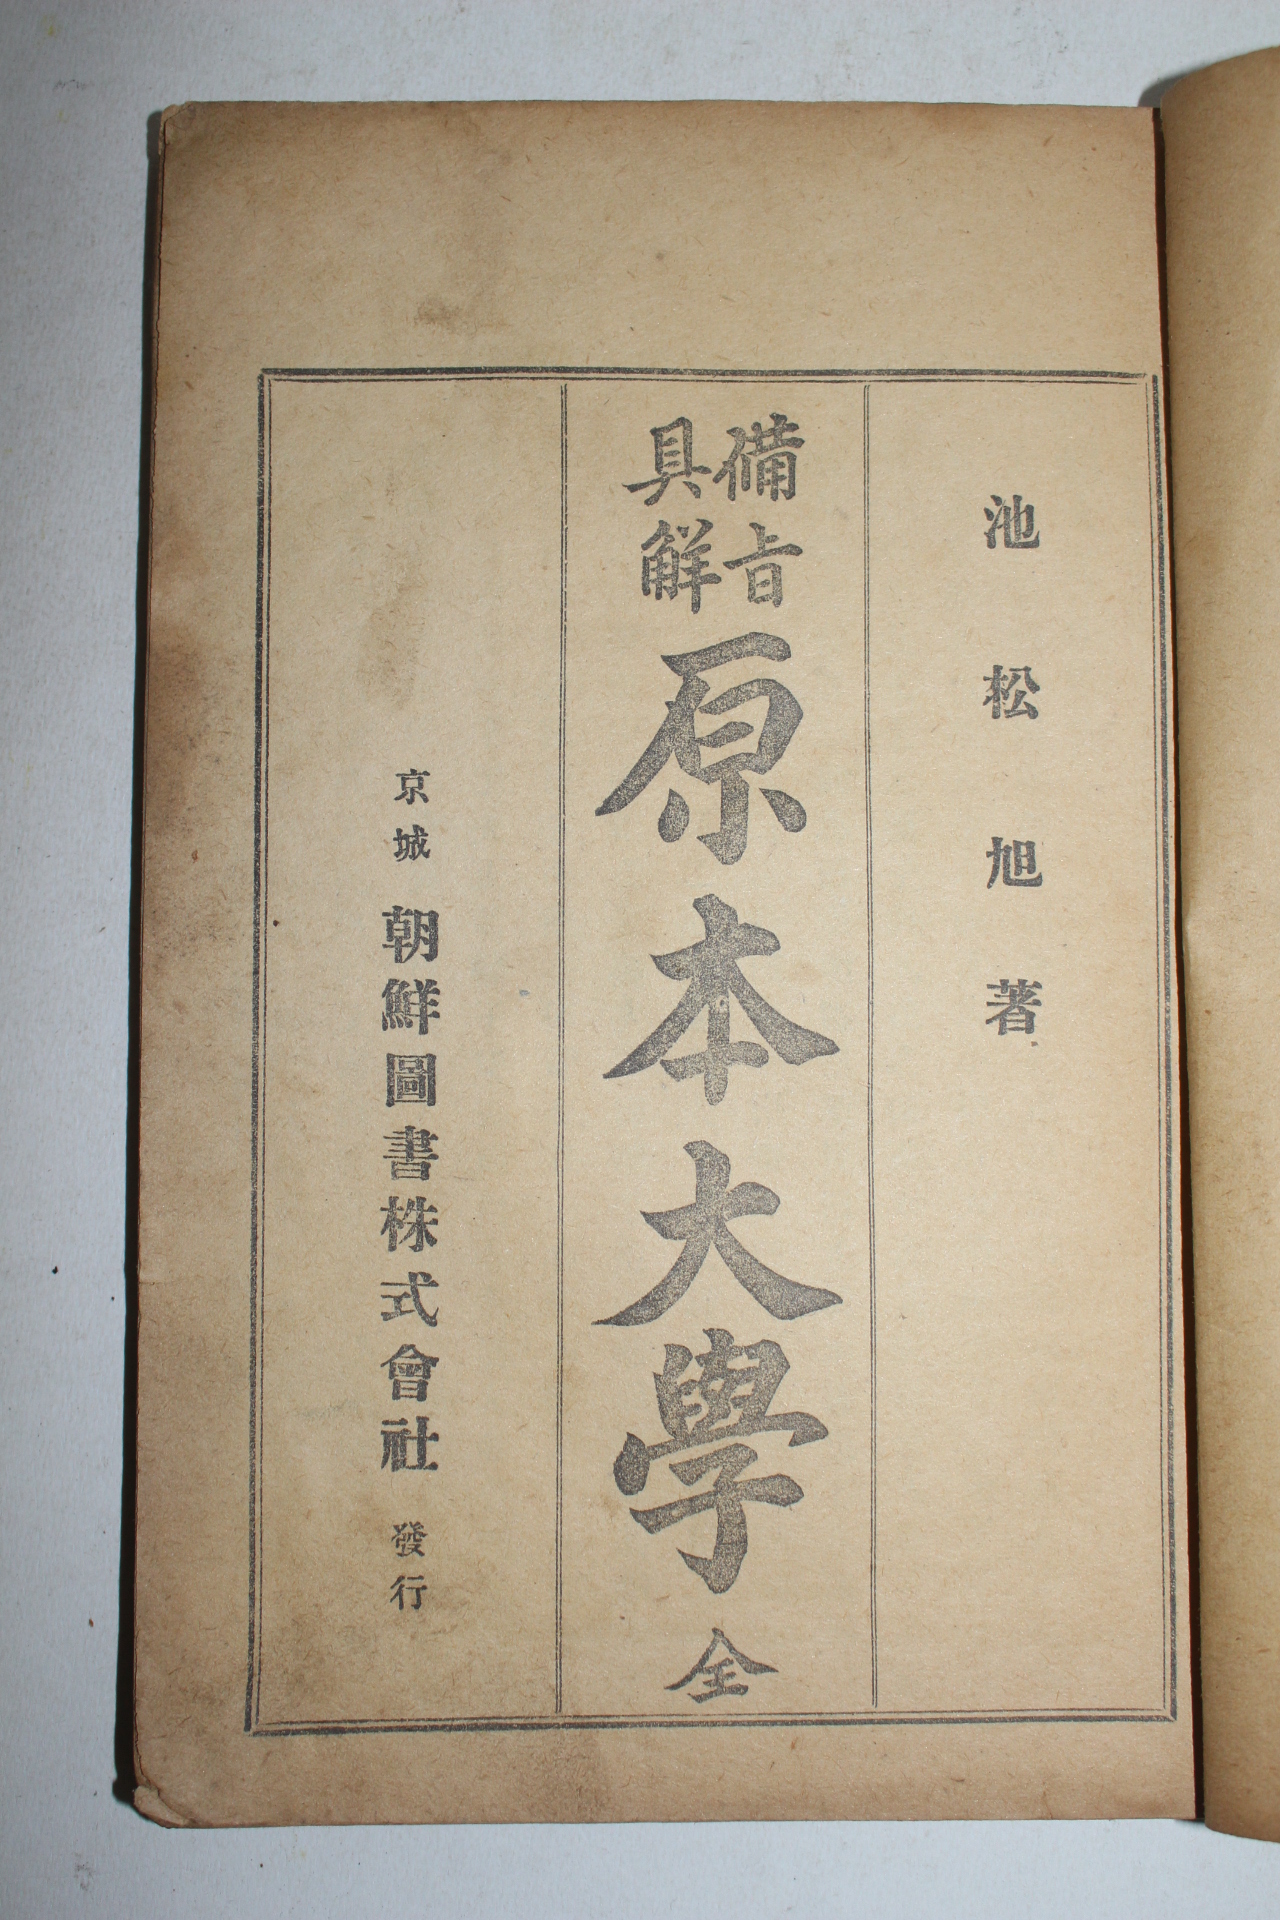 池松旭著
備旨
具觧
原本大學全
京城 朝鮮圖書株式會社 發行